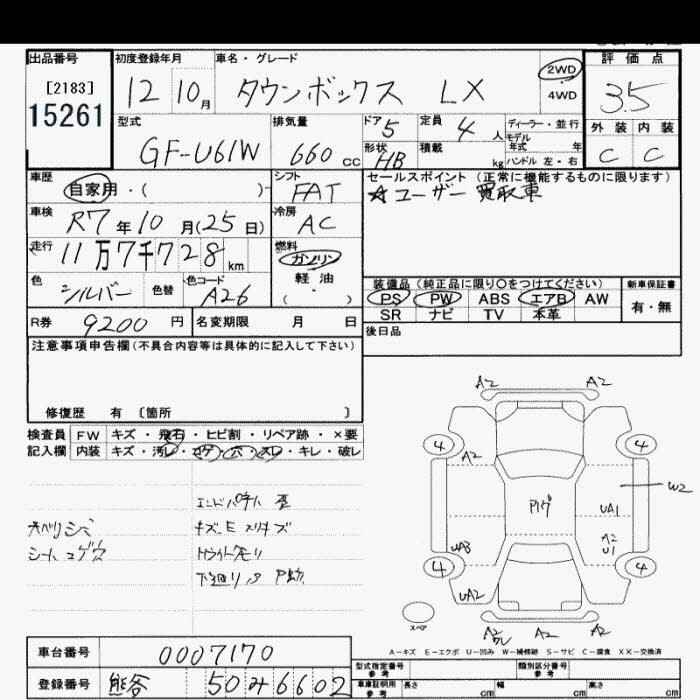 出品番号
[2183]
15261
初度登録年月
12 10月
車名・グレード
タウンボックス LX
2WD
4WD
評価点
3.5
外装 内装
C C
型式
GF-U61W
排気量
660 cc
ドア 5
定員 4 人
形状 HB
積載 kg
ディーラー・並行
モデル年式 年
ハンドル 左・右
車歴
自家用・( )
シフト
FAT
セールスポイント (正常に機能するものに限ります)
☆ユーザー買取車
車検
R7年10月(25日)
冷房
AC
走行
11万7千728 km
燃料
ガソリン
軽油
( )
色
シルバー
色替
色コード
A26
装備品(純正品に限り○をつけてください)
PS PW ABS エアB AW
SR ナビ TV 本革
新車保証書
有・無
R券
9200 円
名変期限 月 日
後日品
注意事項申告欄(不具合内容等は具体的に記入して下さい)
修復歴 有 〔箇所 〕
検査員記入欄
FW キズ・飛石・ヒビ割・リペア跡・×要
内装 キズ・汚レ・コゲ・穴・スレ・キレ・破レ
シートコゲ穴
A2 A2
4 4
A2
W2
UA1
A2
U1
UA3
4 4
UA2
スペア
A2 A2 A2
A-キズ E-エクボ U-凹み W-補修跡 S-サビ C-腐食 XX-交換済
車台番号
0007170
登録番号
熊谷 50 み 6602
型式指定番号
参考
類別区分番号
参考
車庫証明用
参考
長さ cm
幅 cm
高さ cm